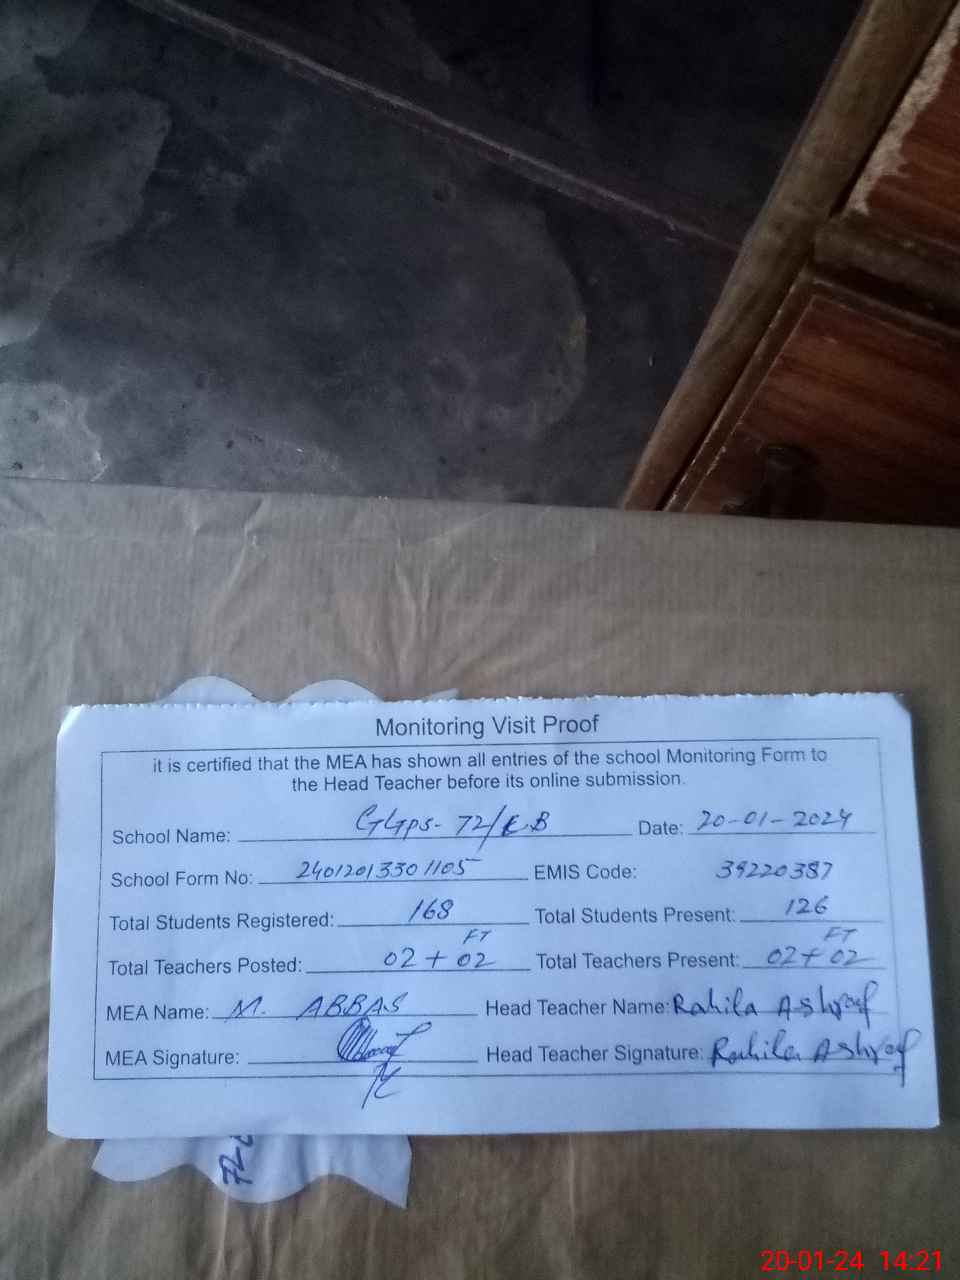 Monitoring Visit Proof
it is certified that the MEA has shown all entries of the school Monitoring Form to
the Head Teacher before its online submission.
School Name: GGPS- 72/EB Date: 20-01-2024
School Form No: 24012013301105 EMIS Code: 39220387
Total Students Registered: 168 Total Students Present: 126
FT FT
Total Teachers Posted: 02 + 02 Total Teachers Present: 02 + 02
MEA Name: M. ABBAS Head Teacher Name: Rahila Ashraf
MEA Signature: Head Teacher Signature: Rahila Ashraf
20-01-24 14:21